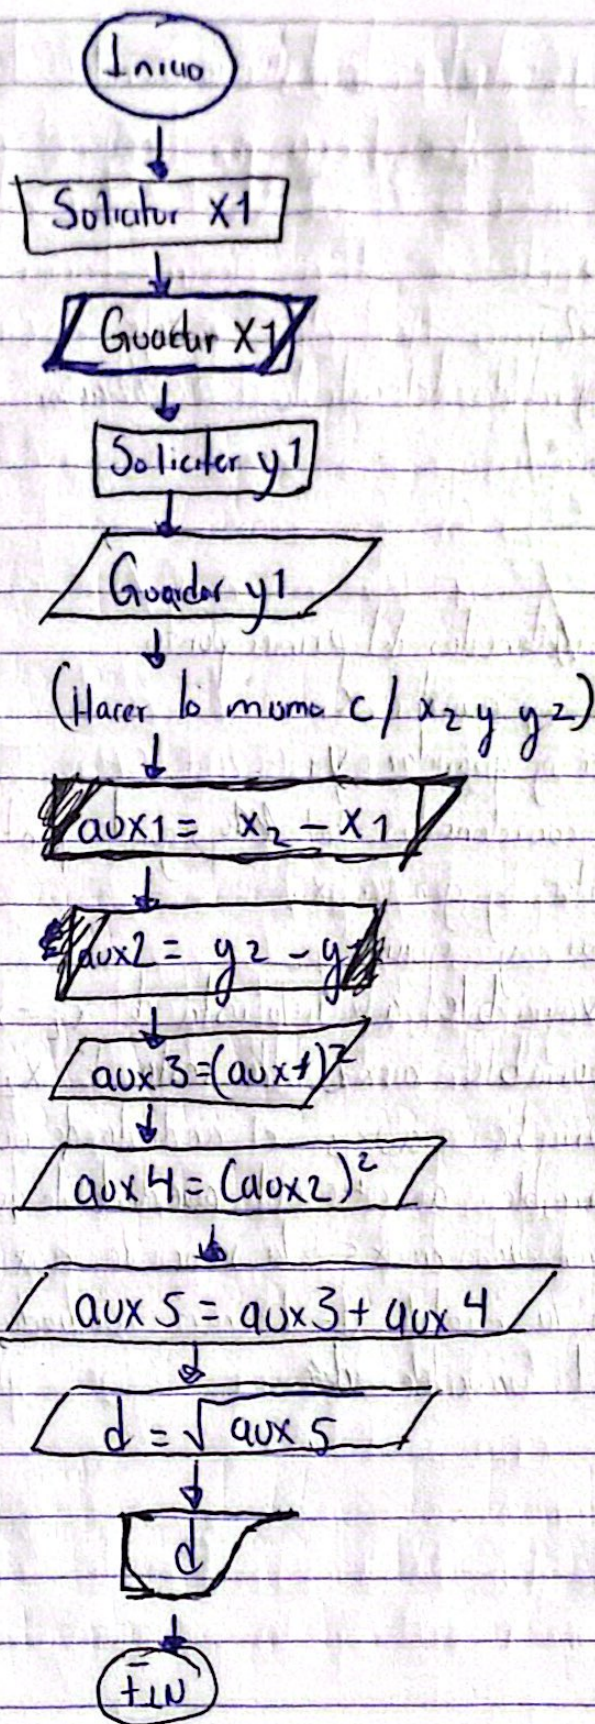 Inicio
Solicitar X1
Guardar X1
Solicitar y1
Guardar y1
(Hacer lo mismo c/ x2 y y2)
aux1 = x2 - x1
aux2 = y2 - y1
aux3=(aux1)²
aux4=(aux2)²
aux5 = aux3 + aux4
d = √aux5
d
FIN